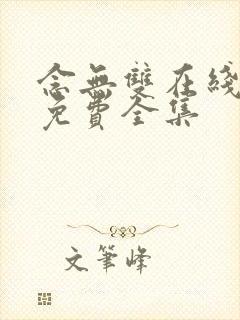 念無雙在綫
免費全集
文筆峰